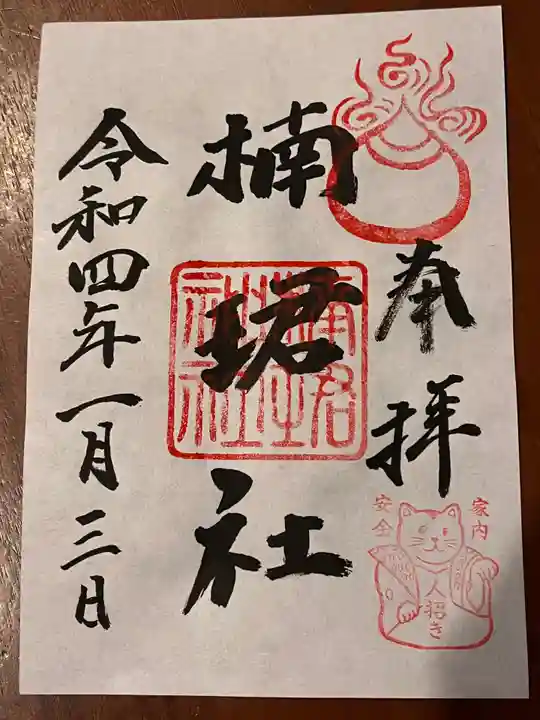 奉拝
楠珺社
令和四年一月三日
家内
安全
人招き